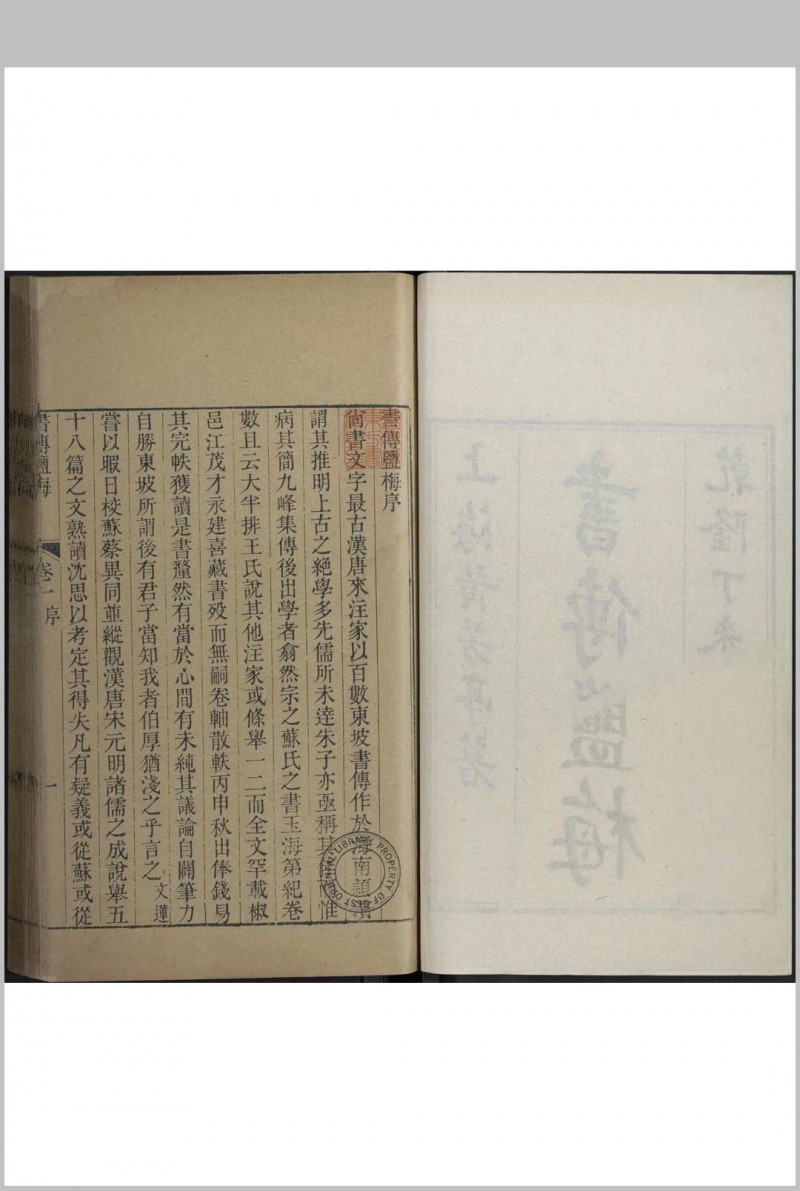 書傳鹽梅序
尙書文字最古漢唐來注家以百數東坡書傳作於海南潁濱
謂其推明上古之絶學多先儒所未達朱子亦亟稱其惟
病其簡九峰集傳後出學者翕然宗之蘇氏之書玉海第紀卷
數且云大半排王氏說其他注家或條舉一二而全文罕載椒
邑江茂才永建喜藏書歿而無嗣卷軸散軼丙申秋出俸錢易
其完帙獲讀是書釐然有當於心間有未純其議論自闢筆力
自勝東坡所謂後有君子當知我者伯厚猶淺之乎言之文蓮
嘗以暇日校蘇蔡異同並縱觀漢唐宋元明諸儒之成說舉五
十八篇之文熟讀沈思以考定其得失凡有疑義或從蘇或從
書傳鹽梅 卷一 序 一
乾隆丁未
書傳鹽梅
上海黃
LIBRARY PROPERTY OF